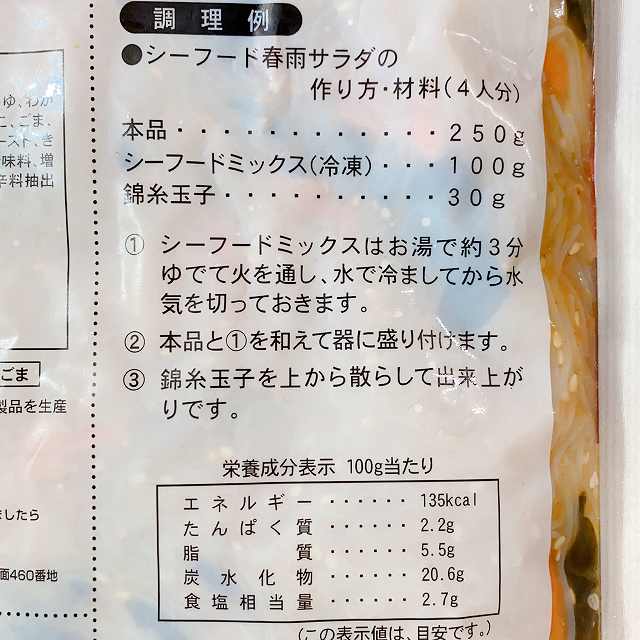 調理例
●シーフード春雨サラダの
作り方・材料(4人分)
本品・・・・・・・・・・・・・250g
シーフードミックス(冷凍)・・・100g
錦糸玉子・・・・・・・・・・30g
① シーフードミックスはお湯で約3分
ゆでて火を通し、水で冷ましてから水
気を切っておきます。
② 本品と①を和えて器に盛り付けます。
③ 錦糸玉子を上から散らして出来上が
りです。
栄養成分表示 100g当たり
エネルギー・・・・・・135kcal
たんぱく質・・・・・・2.2g
脂質・・・・・・5.5g
炭水化物・・・・・・20.6g
食塩相当量・・・・・・2.7g
(この表示値は、目安です。)
ゆ、わか
こ、ごま、
ースト、き
味料、増
辛料抽出
ごま
製品を生産
ましたら
面460番地